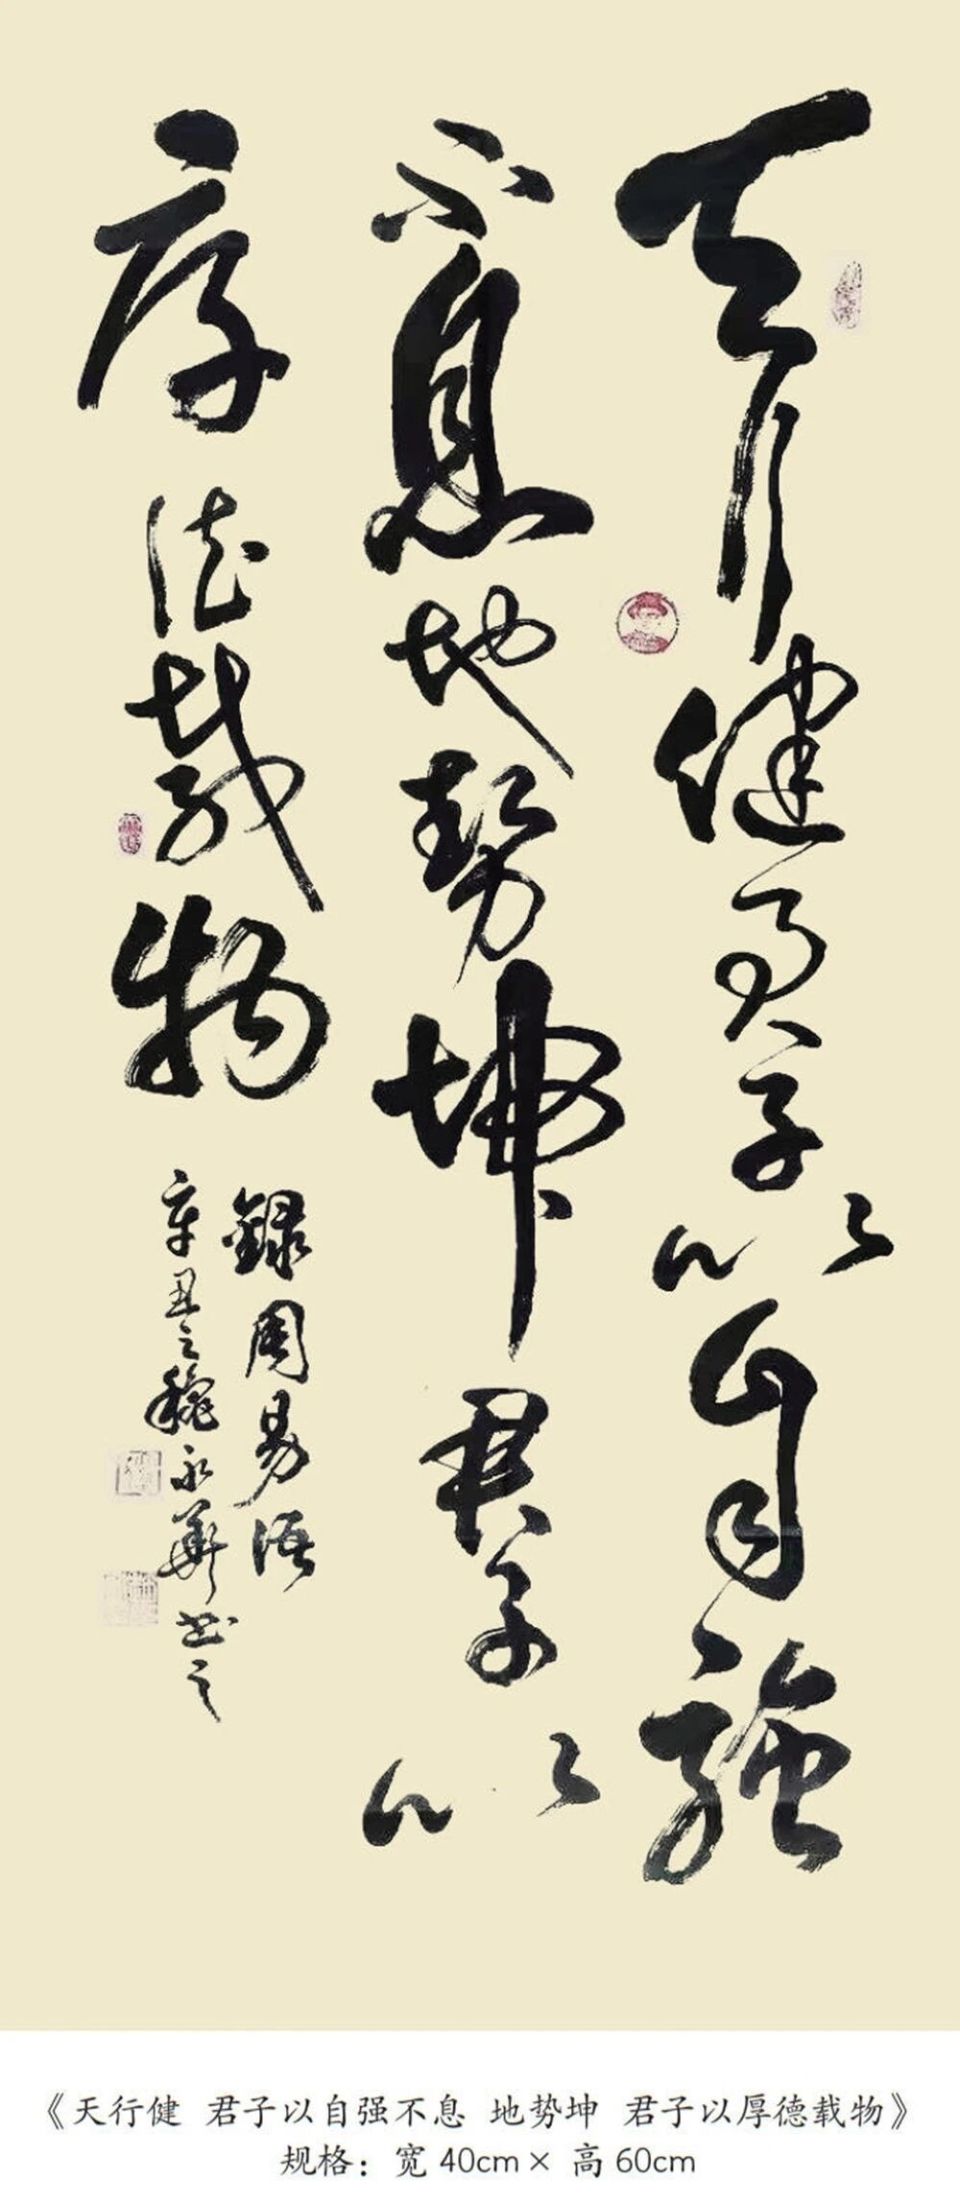 天行健君子以自強
不息地勢坤君子以
厚德載物
録周易語
辛丑之魏永華书之
《天行健 君子以自强不息 地势坤 君子以厚德载物》
规格：宽 40cm × 高 60cm